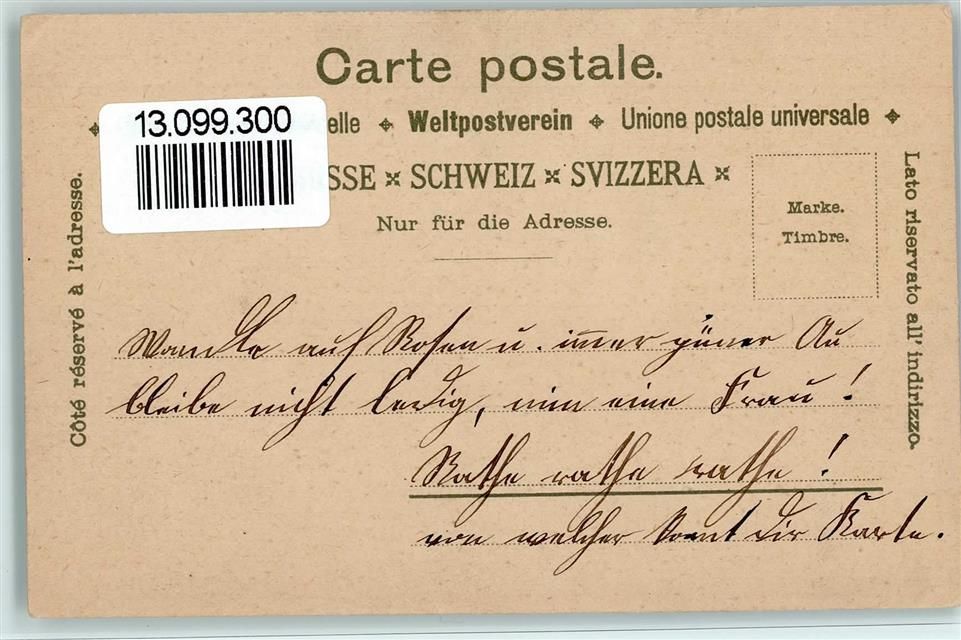 Carte postale.
13.099.300
elle Weltpostverein Unione postale universale
SSE SCHWEIZ SVIZZERA
Nur für die Adresse.
Marke.
Timbre.
Côté réservé à l'adresse.
Lato riservato all' indirizzo.
Wandle auf Rosen u. im̅er grüner Au
bleibe nicht ledig, nim eine Frau!
Rathe rathe rathe!
von welcher kom̅t dir Karte.